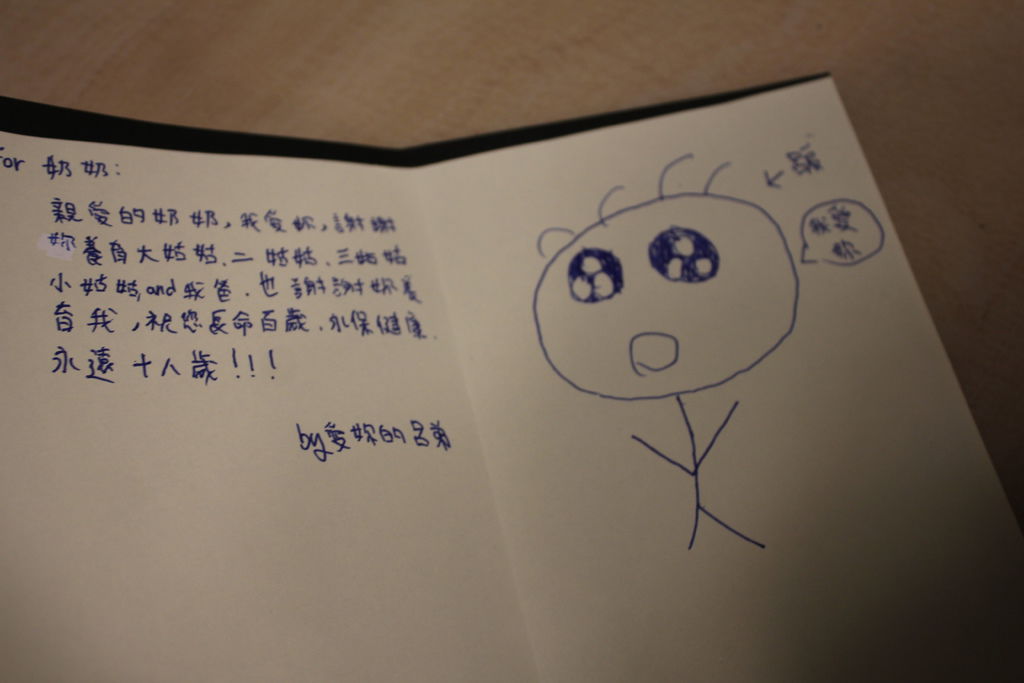 for 奶奶:
親愛的奶奶,我愛妳,謝謝
妳養育大姑姑.二姑姑.三姑姑
小姑姑,and我爸.也謝謝妳養
育我,祝您長命百歲.永保健康.
永遠十八歲!!!
by愛妳的呂弟
我愛
妳